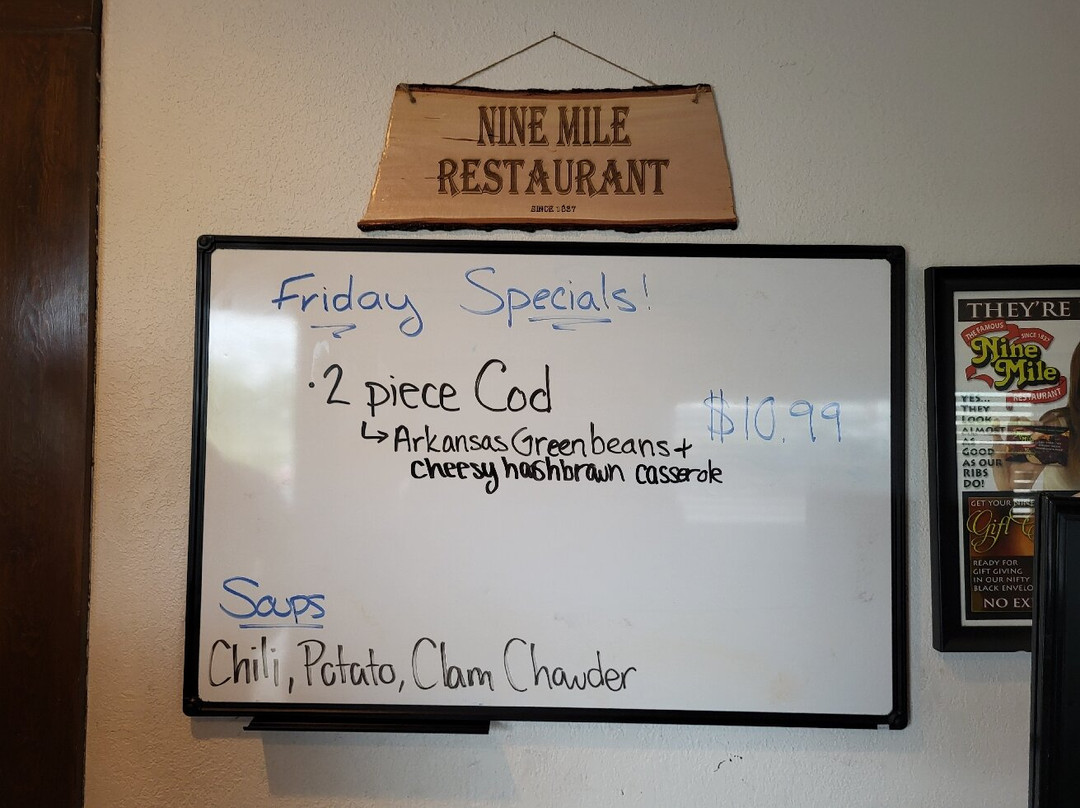 NINE MILE
RESTAURANT
SINCE 1837
Friday Specials!
·2 piece Cod
$10.99
↳Arkansas Greenbeans+
cheesy hashbrown casserole
Soups
Chili, Potato, Clam Chowder
THEY'RE
THE FAMOUS
SINCE 1837
Nine
Mile
RESTAURANT
YES...
THEY
LOOK
ALMOST
AS
GOOD
AS OUR
RIBS
DO!
GET YOUR
Gift
READY FOR
GIFT GIVING
IN OUR NIFTY
BLACK ENVELO
NO EX